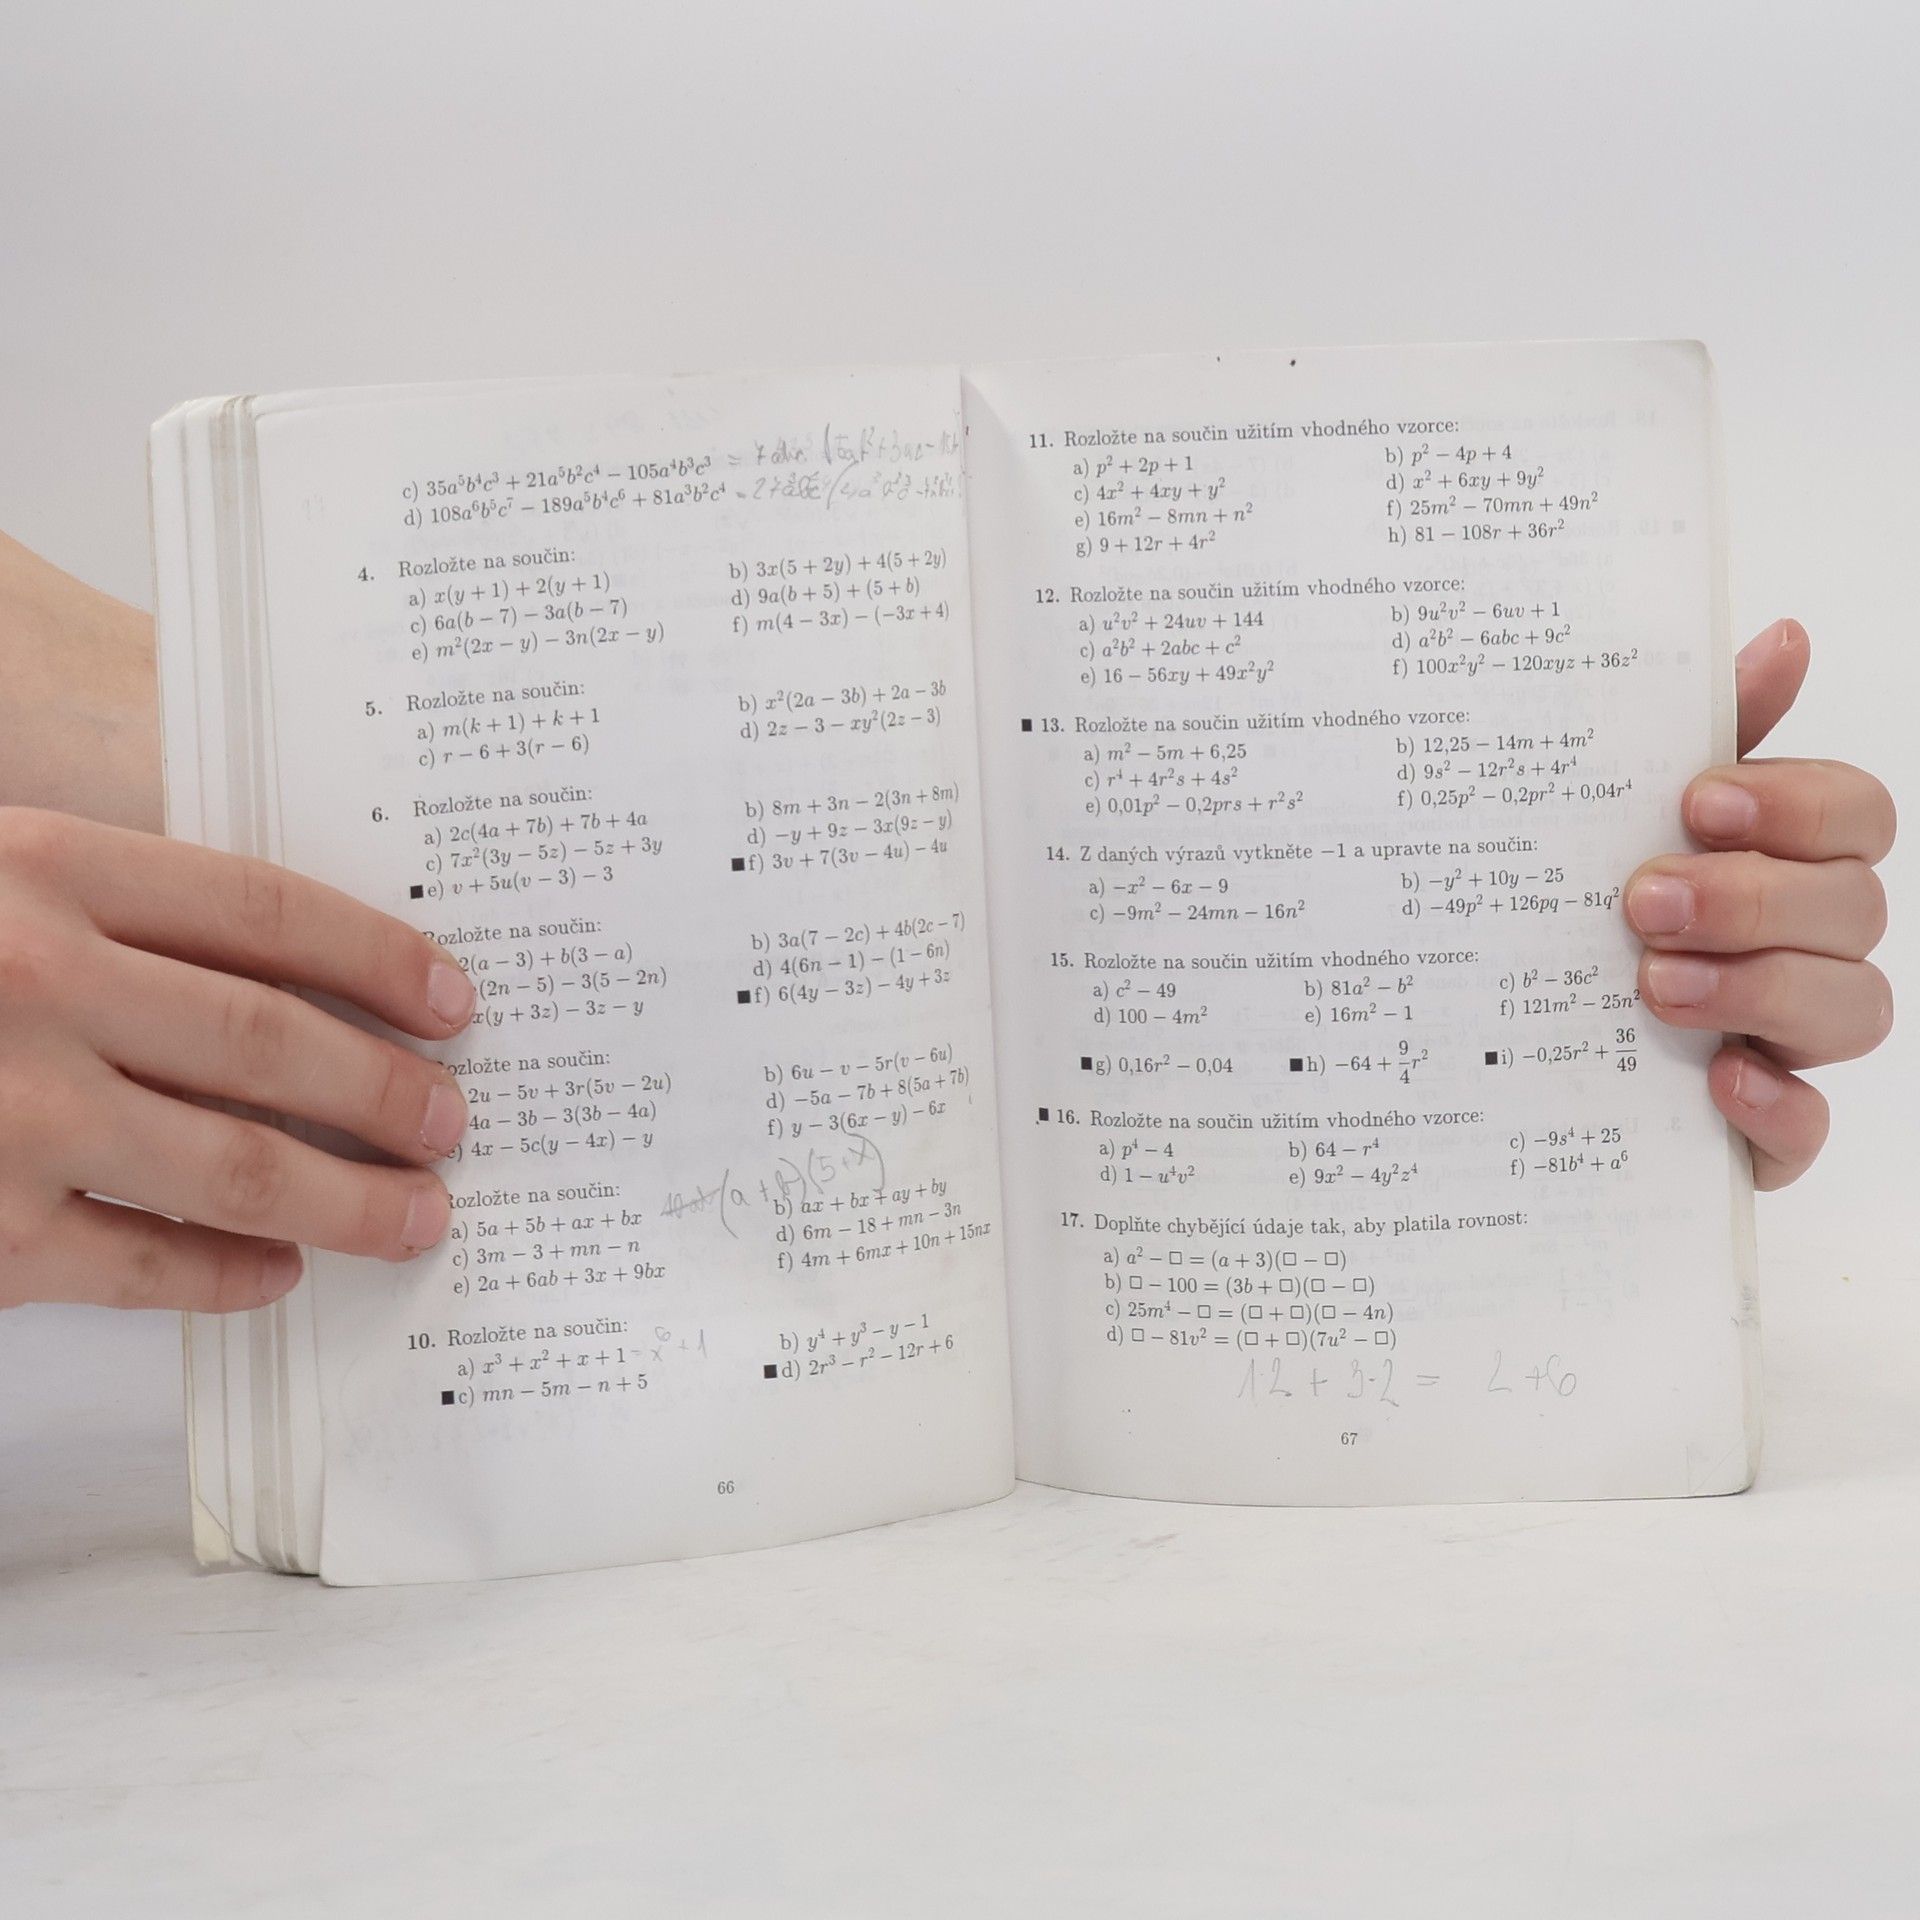 c) 35a⁵b⁴c³ + 21a⁵b²c⁴ − 105a⁴b³c³ =
d) 108a⁶b⁵c⁷ − 189a⁵b⁴c⁶ + 81a³b²c⁴
4. Rozložte na součin:
a) x(y + 1) + 2(y + 1) b) 3x(5 + 2y) + 4(5 + 2y)
c) 6a(b − 7) − 3a(b − 7) d) 9a(b + 5) + (5 + b)
e) m²(2x − y) − 3n(2x − y) f) m(4 − 3x) − (−3x + 4)
5. Rozložte na součin:
a) m(k + 1) + k + 1 b) x²(2a − 3b) + 2a − 3b
c) r − 6 + 3(r − 6) d) 2z − 3 − xy²(2z − 3)
6. Rozložte na součin:
a) 2c(4a + 7b) + 7b + 4a b) 8m + 3n − 2(3n + 8m)
c) 7x²(3y − 5z) − 5z + 3y d) −y + 9z − 3x(9z − y)
■ e) v + 5u(v − 3) − 3 ■ f) 3v + 7(3v − 4u) − 4u
ozložte na součin:
2(a − 3) + b(3 − a) b) 3a(7 − 2c) + 4b(2c − 7)
(2n − 5) − 3(5 − 2n) d) 4(6n − 1) − (1 − 6n)
x(y + 3z) − 3z − y ■ f) 6(4y − 3z) − 4y + 3z
ozložte na součin:
2u − 5v + 3r(5v − 2u) b) 6u − v − 5r(v − 6u)
4a − 3b − 3(3b − 4a) d) −5a − 7b + 8(5a + 7b)
e) 4x − 5c(y − 4x) − y f) y − 3(6x − y) − 6x
Rozložte na součin: (a + b)(5+x)
a) 5a + 5b + ax + bx b) ax + bx + ay + by
c) 3m − 3 + mn − n d) 6m − 18 + mn − 3n
e) 2a + 6ab + 3x + 9bx f) 4m + 6mx + 10n + 15nx
10. Rozložte na součin:
a) x³ + x² + x + 1 = x⁶ + 1 b) y⁴ + y³ − y − 1
■ c) mn − 5m − n + 5 ■ d) 2r³ − r² − 12r + 6
66
11. Rozložte na součin užitím vhodného vzorce:
a) p² + 2p + 1 b) p² − 4p + 4
c) 4x² + 4xy + y² d) x² + 6xy + 9y²
e) 16m² − 8mn + n² f) 25m² − 70mn + 49n²
g) 9 + 12r + 4r² h) 81 − 108r + 36r²
12. Rozložte na součin užitím vhodného vzorce:
a) u²v² + 24uv + 144 b) 9u²v² − 6uv + 1
c) a²b² + 2abc + c² d) a²b² − 6abc + 9c²
e) 16 − 56xy + 49x²y² f) 100x²y² − 120xyz + 36z²
■ 13. Rozložte na součin užitím vhodného vzorce:
a) m² − 5m + 6,25 b) 12,25 − 14m + 4m²
c) r⁴ + 4r²s + 4s² d) 9s² − 12r²s + 4r⁴
e) 0,01p² − 0,2prs + r²s² f) 0,25p² − 0,2pr² + 0,04r⁴
14. Z daných výrazů vytkněte −1 a upravte na součin:
a) −x² − 6x − 9 b) −y² + 10y − 25
c) −9m² − 24mn − 16n² d) −49p² + 126pq − 81q²
15. Rozložte na součin užitím vhodného vzorce:
a) c² − 49 b) 81a² − b² c) b² − 36c²
d) 100 − 4m² e) 16m² − 1 f) 121m² − 25n²
■ g) 0,16r² − 0,04 ■ h) −64 + 9/4 r² ■ i) −0,25r² + 36/49
■ 16. Rozložte na součin užitím vhodného vzorce:
a) p⁴ − 4 b) 64 − r⁴ c) −9s⁴ + 25
d) 1 − u⁴v² e) 9x² − 4y²z⁴ f) −81b⁴ + a⁶
17. Doplňte chybějící údaje tak, aby platila rovnost:
a) a² − □ = (a + 3)(□ − □)
b) □ − 100 = (3b + □)(□ − □)
c) 25m⁴ − □ = (□ + □)(□ − 4n)
d) □ − 81v² = (□ + □)(7u² − □)
1·2 + 3·2 = 2 + 6
67